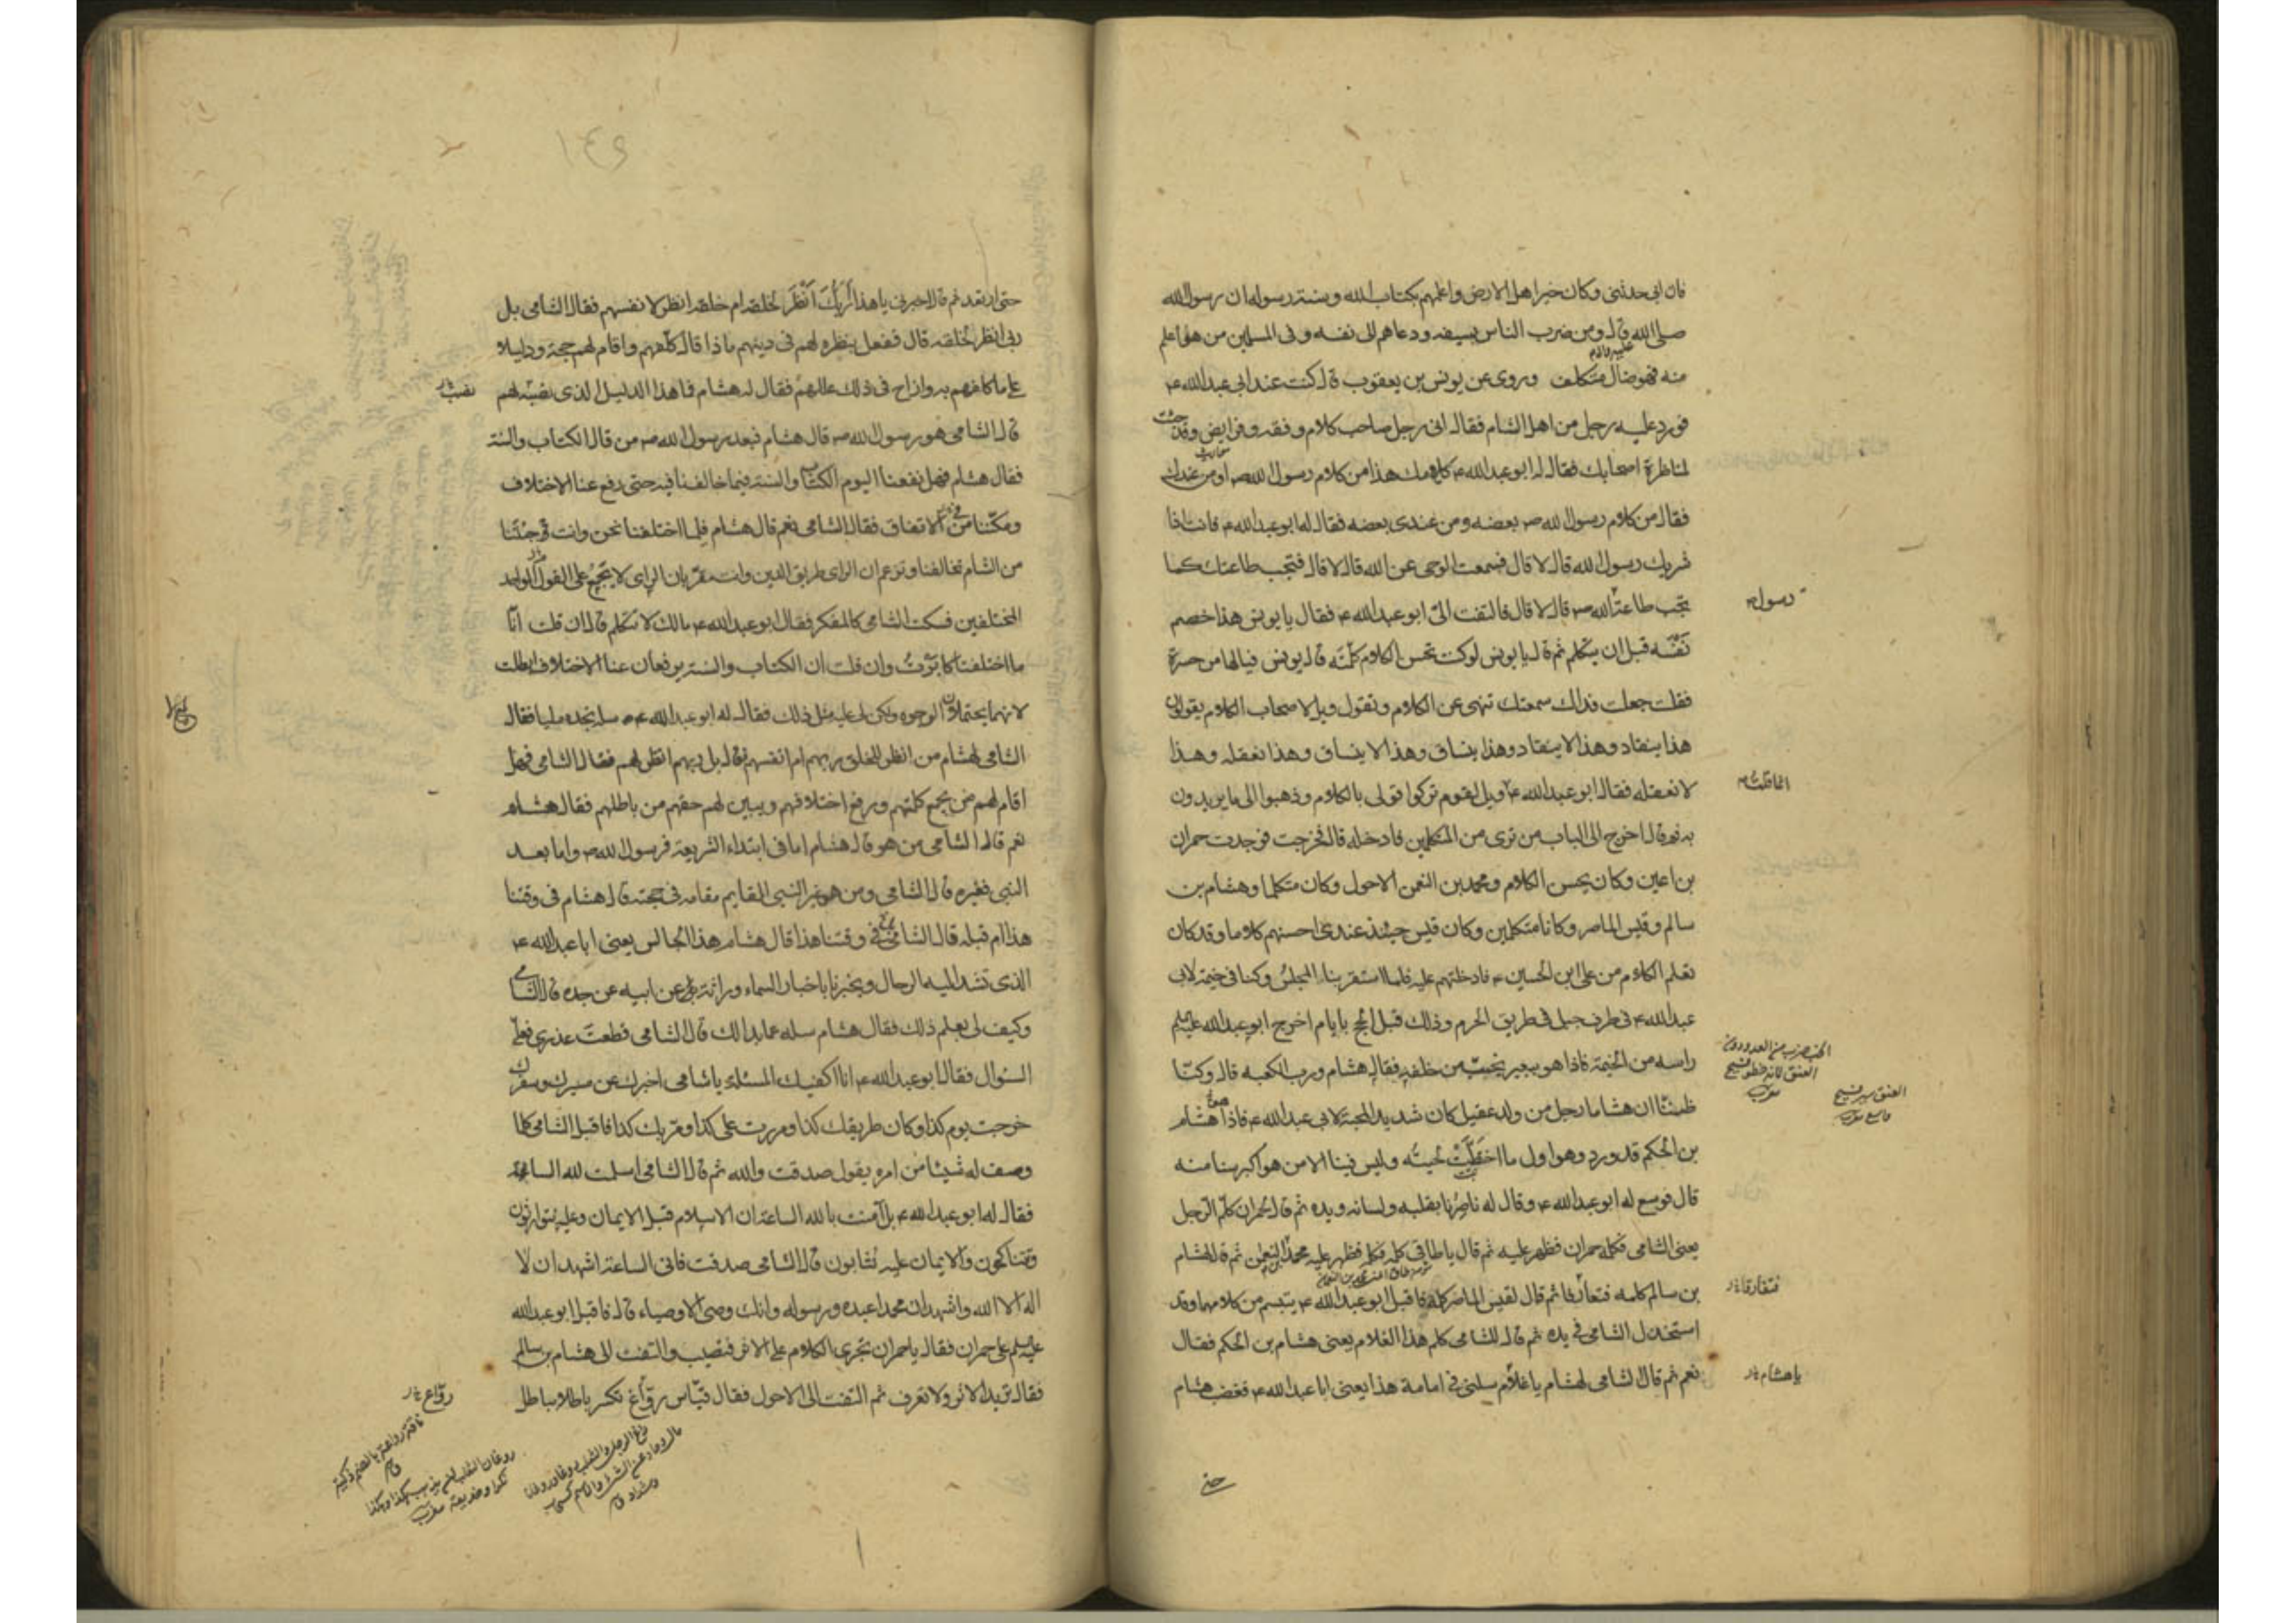 فان ابى حدثنى وكان خير اهل الارض واعلمهم بكتاب الله وسنته رسوله ان رسول الله
صلى الله قال ومن ضرب الناس بسيفه ودعاهم الى نفسه وفى المسلمين من هو اعلم
منه فهو ضال متكلف وروى عن يونس بن يعقوب قال كنت عند ابى عبد الله ع
فورد عليه رجل من اهل الشام فقال انى رجل صاحب كلام وفقه وفرايض وقد جئت
لمناظرة اصحابك فقال له ابو عبد الله ع كلامك هذا من كلام رسول الله ص او من عندك
فقال من كلام رسول الله ص بعضه ومن عندى بعضه فقال له ابو عبد الله ع فانت اذا
شريك رسول الله قال لا قال فسمعت الوحى عن الله قال لا قال فتجب طاعتك كما
رسوله
تجب طاعة الله ص قال لا قال فالتفت الىّ ابو عبد الله ع فقال يا يونس هذا خصم
نَفْسَه قبل ان يتكلم ثم قال يا يونس لو كنت تحسن الكلام كلّمته قال يونس فيالها من حسرة
فقلت جعلت فداك سمعتك تنهى عن الكلام وتقول ويل لاصحاب الكلام يقولون
هذا ينقاد وهذا لا ينقاد وهذا ينساق وهذا لا ينساق وهذا نعقله وهذا
انما قلت
لا نعقله فقال ابو عبد الله ع ويل لقوم تركوا قولى بالكلام وذهبوا الى ما يريدون
به ثم قال اخرج الى الباب من ترى من المتكلمين فادخله قال فخرجت فوجدت حمران
بن اعين وكان يحسن الكلام ومحمد بن النعمن الاحول وكان متكلما وهشام بن
سالم وقيس الماصر وكانا متكلمين وكان قيس حينئذ عندى احسنهم كلاما وقد كان
تعلم الكلام من على ابن الحسين ع فادخلتهم عليه فلما استقر بنا المجلس وكنا فى خيمة لابى
عبد الله ع فى طرف جبل فى طريق الحرم وذلك قبل الحج بايام اخرج ابو عبد الله عليه السلم
راسه من الخيمة فاذا هو ببعير يخبّ من خلفه فقال هشام ورب الكعبه قال وكنّا
الخبب ضرب من العدو دون
العنق لانه خطو فسيح
مغرب
العنق سير فسيح
واسع مغرب
ظننّا ان هشاما رجل من ولد عقيل كان شديد المحبة لابى عبد الله ع فاذا هشام
بن الحكم قد ورد وهو اول ما اختطّت لحيته وليس فينا الا من هو اكبر سنا منه
قال فوسع له ابو عبد الله ع وقال له ناصِرُنا بقلبه ولسانه ويده ثم قال لحمران كلّم الرجل
يعنى الشامى فكلمه حمران فظهر عليه ثم قال يا طاقى كلمه فكلمه فظهر عليه محمد بن النعمن ثم قال لهشام
فتفارقا
بن سالم كلمه فتعارفا ثم قال لقيس الماصر كلمه فاقبل ابو عبد الله ع يتبسم من كلامهما وقد
استخذل الشامى فى يده ثم قال للشامى كلم هذا الغلام يعنى هشام بن الحكم فقال
يا هشام
نعم ثم قال الشامى لهشام يا غلام سلنى فى امامة هذا يعنى ابا عبد الله ع فغضب هشام
حتى
حتى ارتعد ثم قال اخبرنى يا هذا أرَبُّكَ أنْظَرُ لخلقه ام خلقه انظر لانفسهم فقال الشامى بل
ربى انظر لخلقه قال ففعل بنظره لهم فى دينهم ماذا قال كلّفهم واقام لهم حجة ودليلا
على ما كلفهم به وازاح فى ذلك عللهم فقال له هشام فما هذا الدليل الذى نصبه لهم
قال الشامى هو رسول الله ص قال هشام فبعد رسول الله ص من قال الكتاب والسنة
فقال هشام فهل نفعنا اليوم الكتاب والسنة فيما خالفنا فيه حتى رفع عنا الاختلاف
ومكّننا من الاتفاق فقال الشامى نعم قال هشام فلم اختلفنا نحن وانت وجئتنا
من الشام تخالفنا وتزعم ان الراى طريق الدين وانت مقر بان الراى لا يجمع على القول الواحد
المختلفين فسكت الشامى كالمفكر فقال ابو عبد الله ع ما لك لا تتكلم قال ان قلت انّا
ما اختلفنا كابرتُ وان قلت ان الكتاب والسنة يرفعان عنا الاختلاف ابطلت
لانهما يحتملان الوجوه ولكن لى عليه مثل ذلك فقال له ابو عبد الله ع سله تجده مليا فقال
الشامى لهشام من انظر للخلق ربهم ام انفسهم فقال بل ربهم انظر لهم فقال الشامى فهل
اقام لهم من يجمع كلمتهم ويرفع اختلافهم ويبين لهم حقهم من باطلهم فقال هشام
نعم قال الشامى من هو قال هشام اما فى ابتداء الشريعة فرسول الله ص واما بعد
النبى فغيره قال الشامى ومن هو غير النبى القايم مقامه فى حجته قال هشام فى وقتنا
هذا ام قبله قال الشامى فى وقتنا هذا قال هشام هذا الجالس يعنى ابا عبد الله ع
الذى تشد اليه الرحال ويخبرنا باخبار السماء وراثة عن ابيه عن جده قال الشامى
وكيف لى بعلم ذلك فقال هشام سله عما بدا لك قال الشامى قطعت عذرى فعلىّ
السئوال فقال ابو عبد الله ع انا اكفيك المسئلة يا شامى اخبرك عن مسيرك وسفرك
خرجت يوم كذا وكان طريقك كذا ومررت على كذا ومر بك كذا فاقبل الشامى كلما
وصف له شيئا من امره يقول صدقت والله ثم قال الشامى اسلمت لله الساعة
فقال له ابو عبد الله ع بل آمنت بالله الساعة ان الاسلام قبل الايمان وعليه يتوارثون
ويتناكحون والايمان عليه يثابون قال الشامى صدقت فانى الساعة اشهد ان لا
اله الا الله واشهد ان محمدا عبده ورسوله وانك وصى الاوصياء قال فاقبل ابو عبد الله
عليه السلم على حمران فقال يا حمران تجرى الكلام على الاثر فتصيب والتفت الى هشام بن سالم
فقال تريد الاثر ولا تعرف ثم التفت الى الاحول فقال قيّاس روّاغ تكسر باطلا بباطل
روّاع